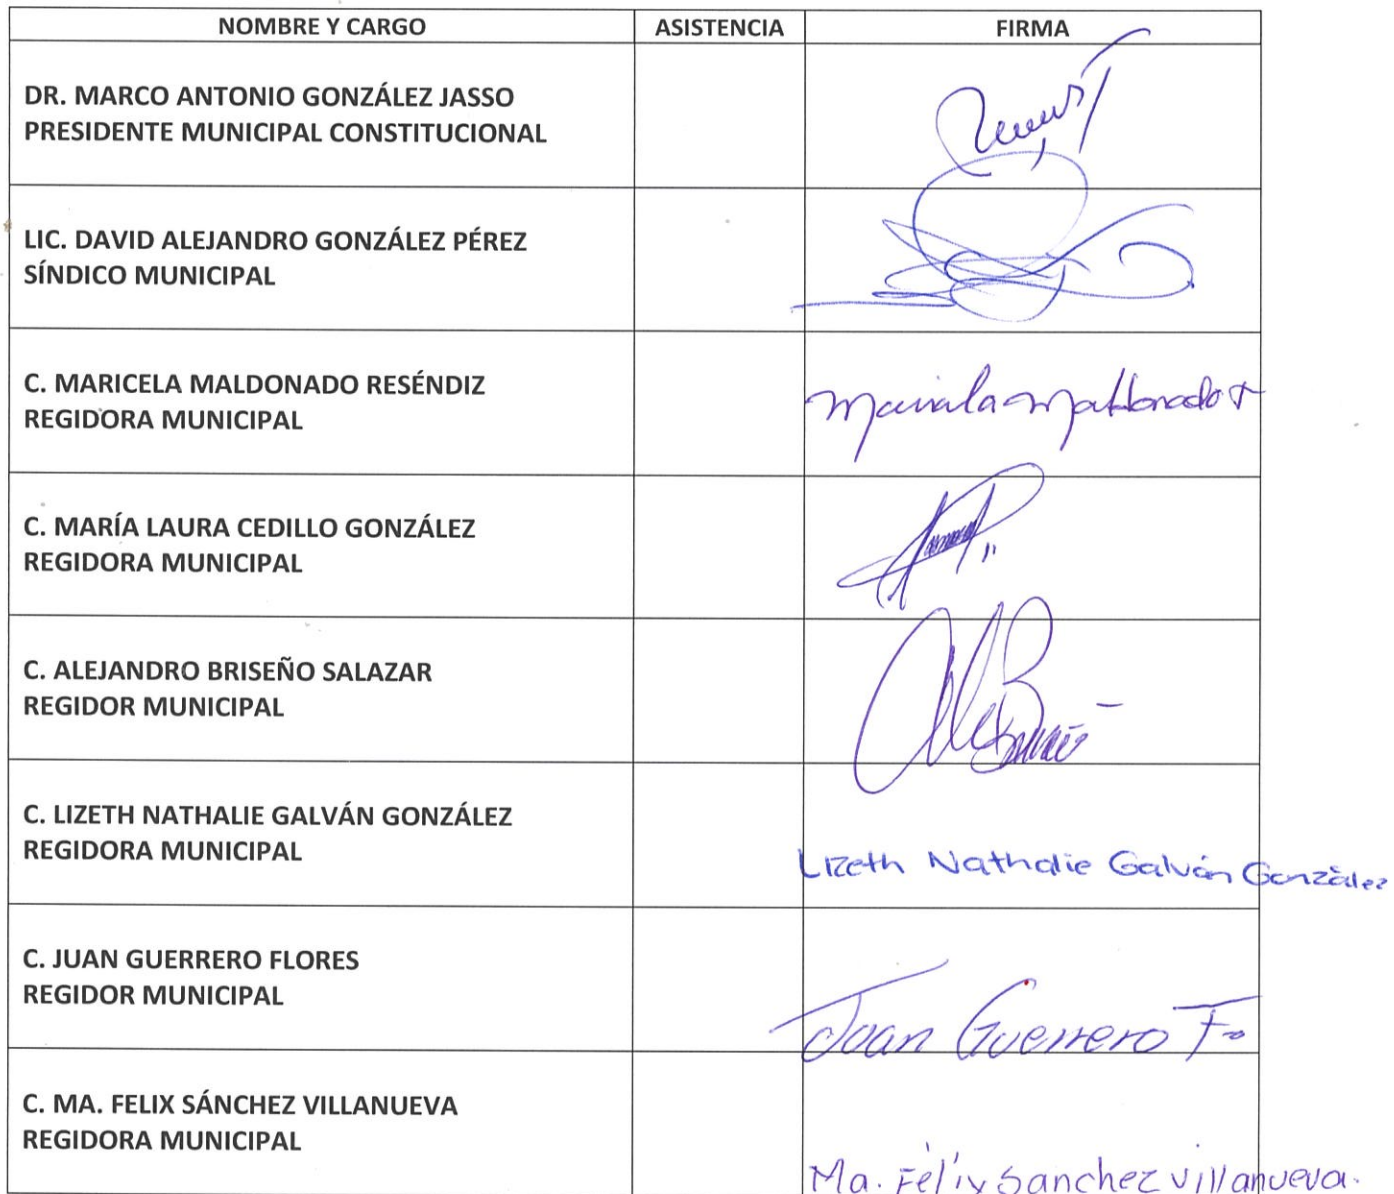 NOMBRE Y CARGO ASISTENCIA FIRMA
DR. MARCO ANTONIO GONZÁLEZ JASSO
PRESIDENTE MUNICIPAL CONSTITUCIONAL
LIC. DAVID ALEJANDRO GONZÁLEZ PÉREZ
SÍNDICO MUNICIPAL
C. MARICELA MALDONADO RESÉNDIZ
REGIDORA MUNICIPAL
Maricela Maldonado R
C. MARÍA LAURA CEDILLO GONZÁLEZ
REGIDORA MUNICIPAL
C. ALEJANDRO BRISEÑO SALAZAR
REGIDOR MUNICIPAL
C. LIZETH NATHALIE GALVÁN GONZÁLEZ
REGIDORA MUNICIPAL
Lizeth Nathalie Galván González
C. JUAN GUERRERO FLORES
REGIDOR MUNICIPAL
Juan Guerrero F
C. MA. FELIX SÁNCHEZ VILLANUEVA
REGIDORA MUNICIPAL
Ma. Félix Sanchez Villanueva.